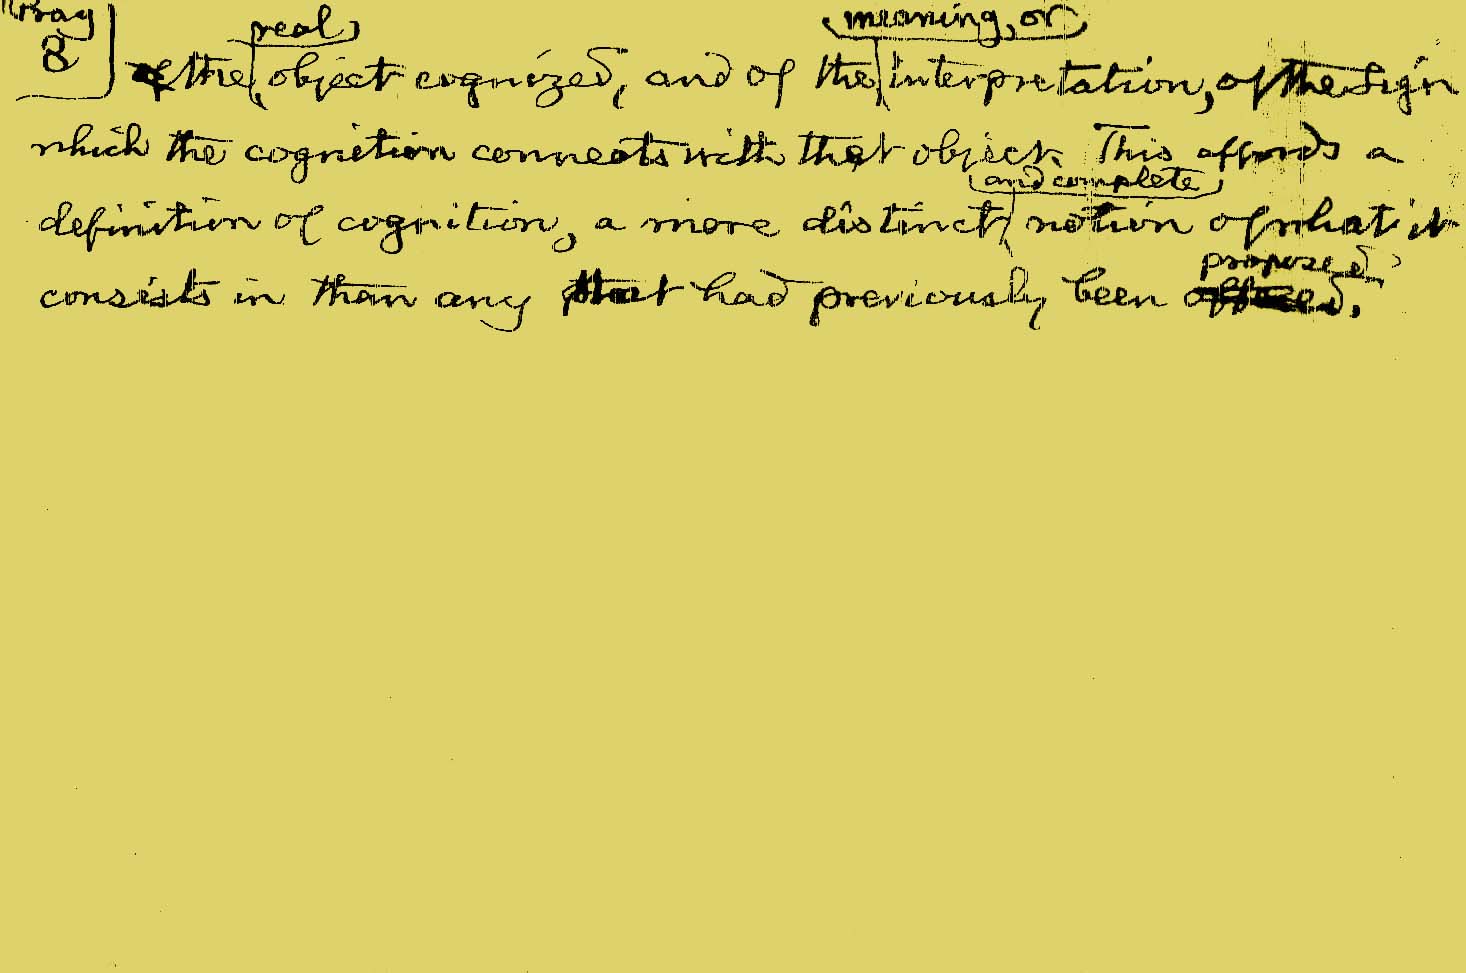 8
real
meaning, or
of the object cognized, and of the interpretation, of the Sign
which the cognition connects with that object. This affords a
and complete
definition of cognition, a more distinct notion of what it
proposed
consists in than any that had previously been